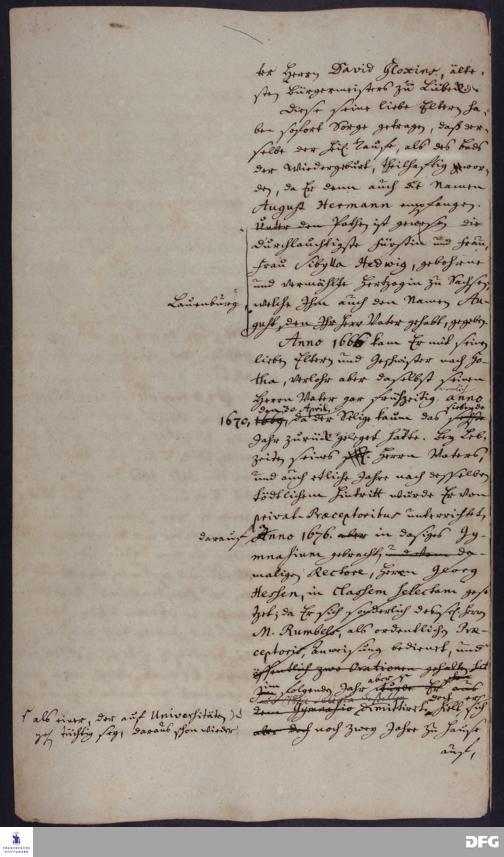 ter Herrn David Gloxins, älte-
sten Bürgermeisters zu Lübeck.
Diese seine liebe Eltern ha-
ben sofort Sorge getragen, daß der-
selbe der heil. Taufe, als des Bads
der Wiedergeburt, theilhaftig wor-
den, da Er denn auch die Namen
August Hermann empfangen.
Unter den Pathen ist gewesen die
Durchlauchtigste Fürstin und Frau,
Frau Sibylla Hedwig, gebohrne
und vermählte Hertzogin zu Sachsen
Lauenburg,
welche Ihm auch den Namen Au-
gust, den Ihr Herr Vater gehabt, gegeben.
Anno 1666 kam Er mit seinen
lieben Eltern und Geschwister nach Go-
tha, verlohr aber daselbst seinen
Herrn Vater gar frühzeitig anno
1670, den 30. April, da der Selige kaum das siebende
Jahr zurück geleget hatte. Bey Leb-
zeiten seines Herrn Vaters,
und auch etliche Jahre nach desselben
tödtlichem Hintritt wurde Er von
privat-Præceptoribus unterrichtet,
darauf Anno 1676. aber in dasiges Gy-
mnasium gebracht, und vom da-
maligen Rectore, Herrn Georg
Hessen, in Classem selectam gese-
tzet; da Er sich sonderlich des Herrn
M. Rumbels, als ordentlichen Præ-
ceptoris, Anweisung bedienet, und
öffentlich zwo Orationen gehalten hat
im folgenden Jahr aber Er aus
dem Gymnasio dimittiret, sich
als einer, der auf Universitäten zu
gehen tüchtig sey, daraus schon wieder
aber doch noch zwey Jahre zu Hause
auf,
FRANCKESCHE STIFTUNGEN
DFG